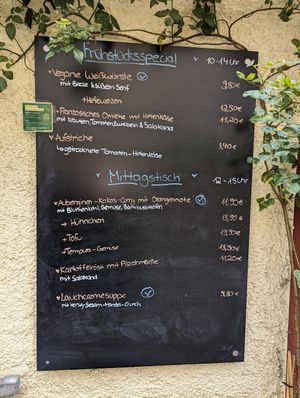 Frühstücksspecial 10-14 Uhr
Vegane Weißwürste 9,80€
mit Breze & süßem Senf
+ Hefeweizen 12,50€
Französisches Omlette mit Hirtenkäse 11,20€
mit Kräutern, Tomaten, Zwiebeln & Salatkranz
Aufstriche
getrocknete Tomaten-Hirtenkäse 3,40€
Mittagstisch 12-15 Uhr
Auberginen-Kokos-Curry mit Orangennote 11,90€
mit Blumenkohl, Gemüse, Basmatireis
+ Hühnchen 13,90€
+ Tofu 13,90€
+ Tempura-Gemüse 13,90€
Kartoffelrösti mit 11,20€
mit Salatkranz
Lauchcremesuppe 9,80€
mit Honig-Sesam-Mandel-Crunch